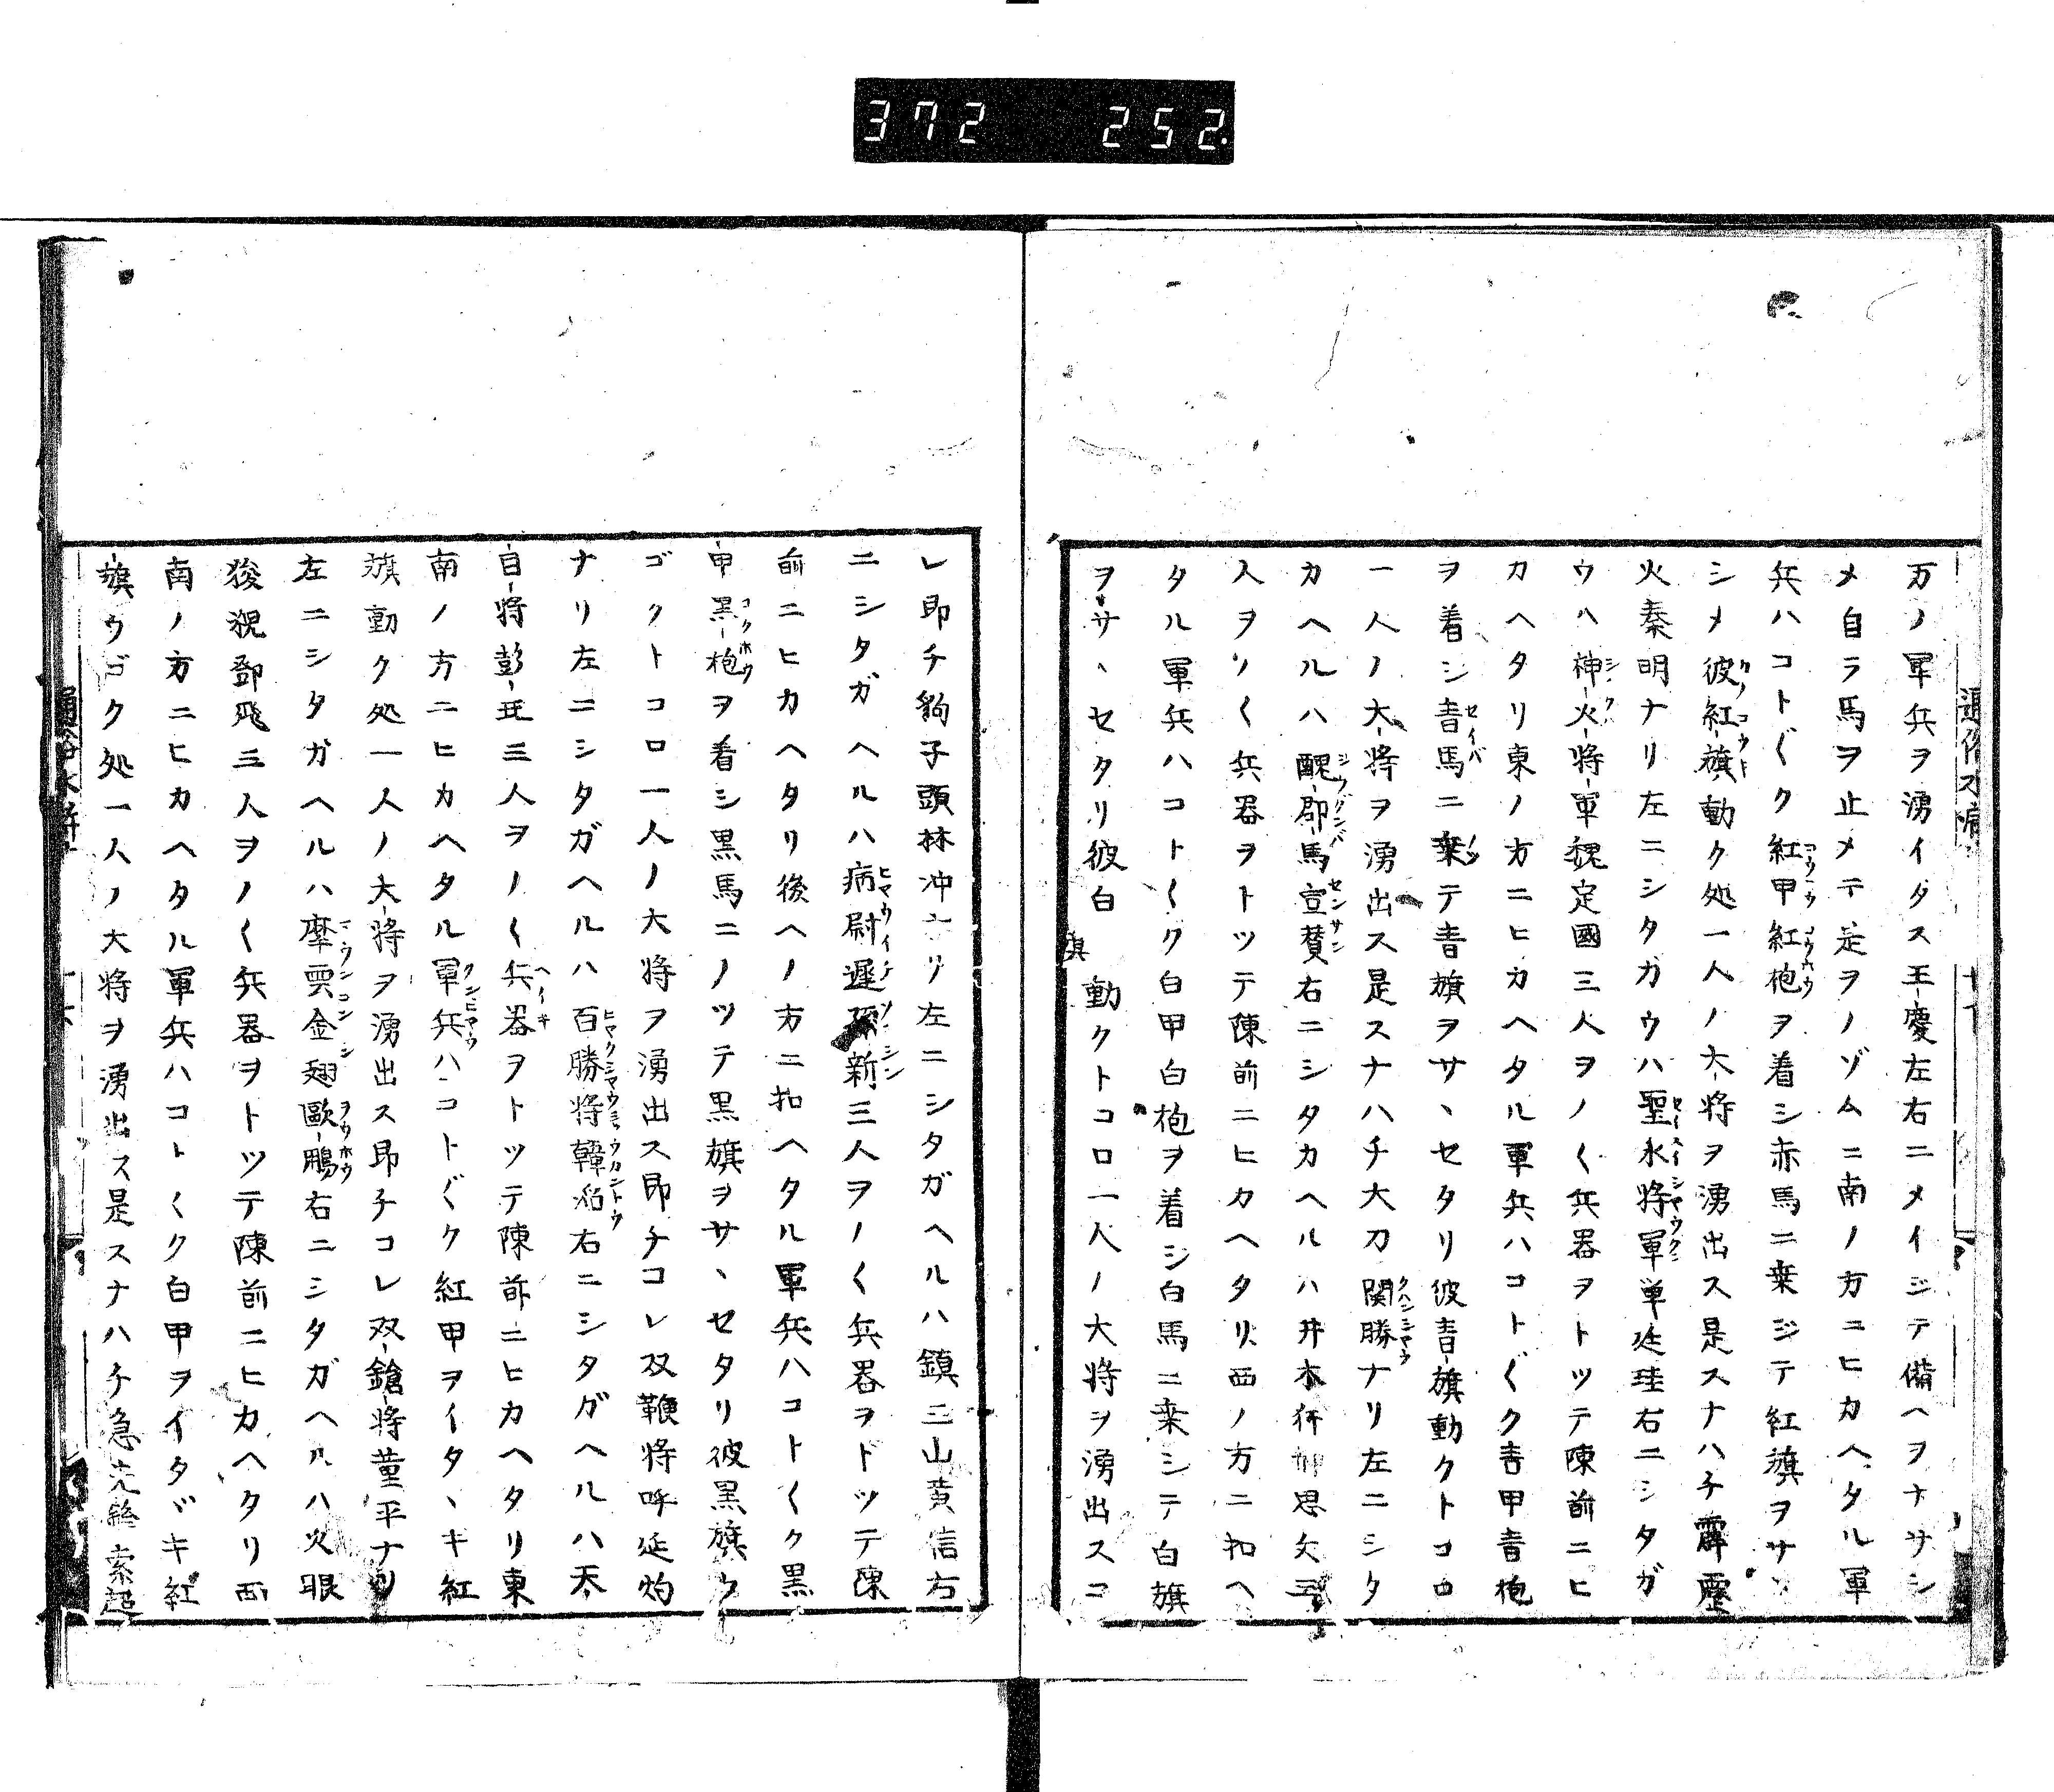 372 252
万ノ軍兵ヲ湧イタス王慶左右ニメイジテ備ヘヲナサシ
メ自ラ馬ヲ止メテ是ヲノゾムニ南ノ方ニヒカヘタル軍
兵ハコト〲ク紅甲紅袍ヲ着シ赤馬ニ乗ジテ紅旗ヲサヽ
シメ彼紅旗動ク処一人ノ大将ヲ湧出ス是スナハチ霹靂
火秦明ナリ左ニシタカウハ聖水将軍単廷珪右ニシタガ
ウハ神火将軍魏定國三人ヲノ〱兵器ヲトツテ陳前ニヒ
カヘタリ東ノ方ニヒカヘタル軍兵ハコト〲ク青甲青袍
ヲ着シ青馬ニ乗テ青旗ヲサヽセタリ彼青旗動クトコロ
一人ノ大将ヲ湧出ス是スナハチ大刀関勝ナリ左ニシタ
カヘルハ醜郡馬宣賛右ニシタカヘルハ井木犴郝思文三
人ヲソ〱兵器ヲトツテ陳前ニヒカヘタリ西ノ方ニ扣ヘ
タル軍兵ハコト〱ク白甲白袍ヲ着シ白馬ニ乗シテ白旗
ヲサヽセタリ彼白旗動クトコロ一人ノ大将ヲ湧出スコ
レ即チ豹子頭林冲ナリ左ニシタガヘルハ鎮三山黄信右
ニシタガヘルハ病尉遅孫新三人ヲノ〱兵器ヲトツテ陳
前ニヒカヘタリ後ヘノ方ニ扣ヘタル軍兵ハコト〱ク黒
甲黒袍ヲ着シ黒馬ニノツテ黒旗ヲサヽセタリ彼黒旗ウ
ゴクトコロ一人ノ大将ヲ湧出ス即チコレ双鞭将呼延灼
ナリ左ニシタガヘルハ百勝将韓滔右ニシタガヘルハ天
目将彭玘三人ヲノ〱兵器ヲトツテ陳前ニヒカヘタリ東
南ノ方ニヒカヘタル軍兵ハコト〲ク紅甲ヲイタヽキ紅
旗動ク処一人ノ大将ヲ湧出ス即チコレ双鎗将董平ナリ
左ニシタガヘルハ摩雲金翅歐鵬右ニシタガヘルハ火眼
狻猊鄧飛三人ヲノ〱兵器ヲトツテ陳前ニヒカヘタリ西
南ノ方ニヒカヘタル軍兵ハコト〱ク白甲ヲイタヾキ紅
旗ウゴク処一人ノ大将ヲ湧出ス是スナハチ急先鋒索超